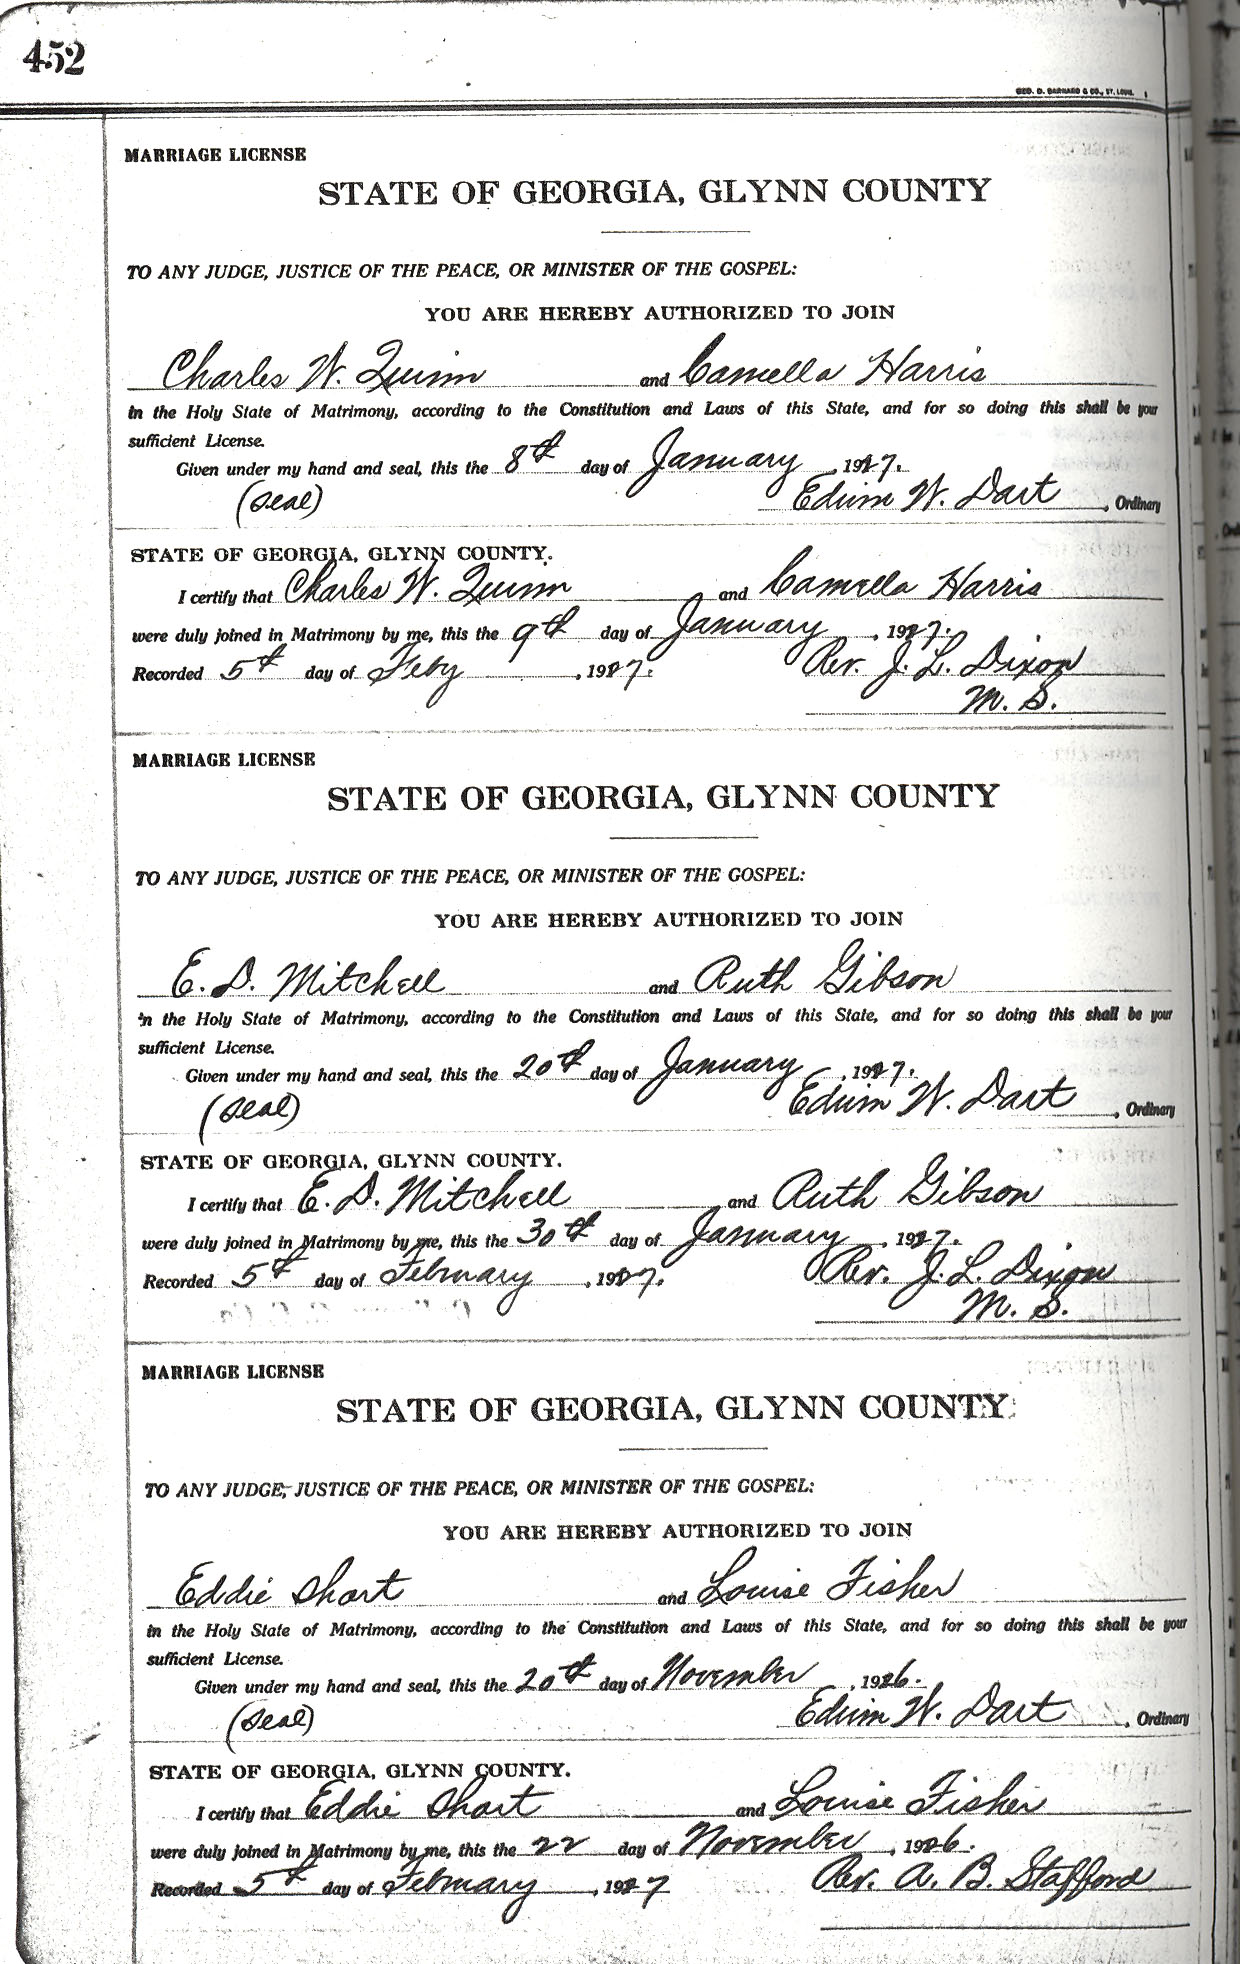 452
GEO. D. BARNARD & CO., ST. LOUIS.
MARRIAGE LICENSE
STATE OF GEORGIA, GLYNN COUNTY
TO ANY JUDGE, JUSTICE OF THE PEACE, OR MINISTER OF THE GOSPEL:
YOU ARE HEREBY AUTHORIZED TO JOIN
Charles W. Quinn and Camella Harris
in the Holy State of Matrimony, according to the Constitution and Laws of this State, and for so doing this shall be your
sufficient License.
Given under my hand and seal, this the 8th day of January, 1927.
(Seal) Edwin W. Dart, Ordinary
STATE OF GEORGIA, GLYNN COUNTY.
I certify that Charles W. Quinn and Camella Harris
were duly joined in Matrimony by me, this the 9th day of January, 1927.
Recorded 5th day of Feby, 1927. Rev. J. L. Dixon
M. G.
MARRIAGE LICENSE
STATE OF GEORGIA, GLYNN COUNTY
TO ANY JUDGE, JUSTICE OF THE PEACE, OR MINISTER OF THE GOSPEL:
YOU ARE HEREBY AUTHORIZED TO JOIN
E. D. Mitchell and Ruth Gibson
in the Holy State of Matrimony, according to the Constitution and Laws of this State, and for so doing this shall be your
sufficient License.
Given under my hand and seal, this the 20th day of January, 1927.
(Seal) Edwin W. Dart, Ordinary
STATE OF GEORGIA, GLYNN COUNTY.
I certify that E. D. Mitchell and Ruth Gibson
were duly joined in Matrimony by me, this the 30th day of January, 1927.
Recorded 5th day of February, 1927. Rev. J. L. Dixon
M. G.
MARRIAGE LICENSE
STATE OF GEORGIA, GLYNN COUNTY
TO ANY JUDGE, JUSTICE OF THE PEACE, OR MINISTER OF THE GOSPEL:
YOU ARE HEREBY AUTHORIZED TO JOIN
Eddie Short and Louise Fisher
in the Holy State of Matrimony, according to the Constitution and Laws of this State, and for so doing this shall be your
sufficient License.
Given under my hand and seal, this the 20th day of November, 1926.
(Seal) Edwin W. Dart, Ordinary
STATE OF GEORGIA, GLYNN COUNTY.
I certify that Eddie Short and Louise Fisher
were duly joined in Matrimony by me, this the 22 day of November, 1926.
Recorded 5th day of February, 1927 Rev. A. B. Stafford